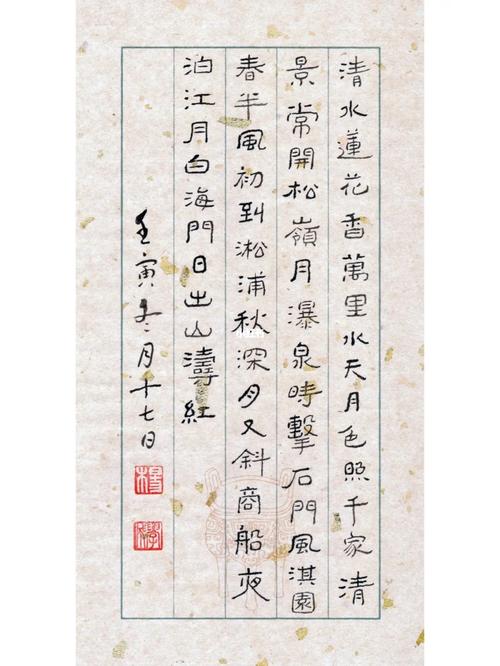 清水蓮花香萬里水天月色照千家清
景常開松嶺月瀑泉時擊石門風淇園
春半風初到淞浦秋深月又斜商船夜
泊江月白海門日出山濤紅
壬寅冬月十七日